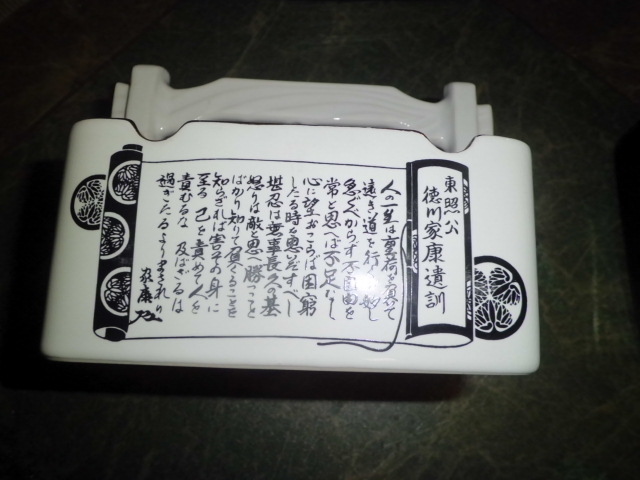 東照公
徳川家康遺訓
人の一生は重荷を負て
遠き道を行く如し
急ぐべからず不自由を
常と思へば不足なし
心に望おこらば困窮
したる時を思い出すべし
堪忍は無事長久の基
怒りは敵と思へ勝つこと
ばかり知りて負くることを
知らざれば害其の身に
至る 己を責めて人を
責むるな 及ばざるは
過ぎたるよりまされり
家康